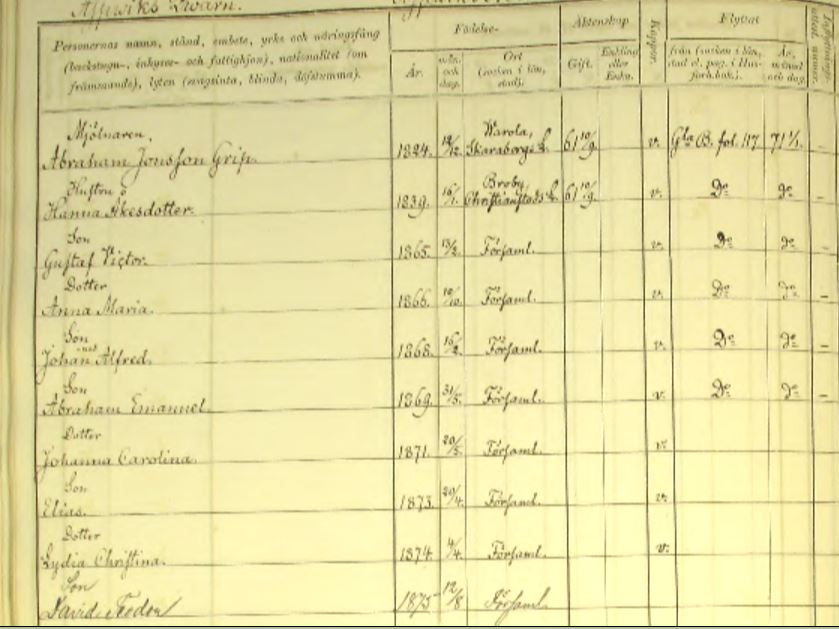 Qvarn.
Personernas namn, stånd, embete, yrke och näringsfång
(backstugu-, inhyses- och fattighjon), nationalitet (om
främmande), lyten (svagsinta, blinda, döfstumma).
Födelse-
År.
mån. och dag.
Ort (socken i län, stad).
Äktenskap
Gift.
Enkling eller Enka.
Koppor.
Flyttat
från (socken i län, stad el. pag. i Husförh.bok.).
År, månad och dag.
Mjölnaren.
Abraham Jonsson Grip. 1824. 12/12 Warola, Skaraborgs L. 61 10/9 v. Gla B. fol. 117 71 1/1 –
Hustru
Hanna Åkesdotter. 1839. 16/1. Broby, Christianstads L. 61 10/9 v. Do do –
Son
Gustaf Victor. 1865. 13/2 Församl. v. Do do –
Dotter
Anna Maria. 1866. 10/10. Församl. v. Do do –
Son
Johannes Alfred. 1868. 16/2. Församl. v. Do do –
Son
Abraham Emanuel. 1869. 31/5. Församl. v. Do do –
Dotter
Johanna Carolina. 1871. 20/5. Församl. v.
Son
Elias. 1873. 20/4. Församl. v.
Dotter
Lydia Christina. 1874. 4/4. Församl. v.
Son
David Teodor 1875 12/8 Församl.